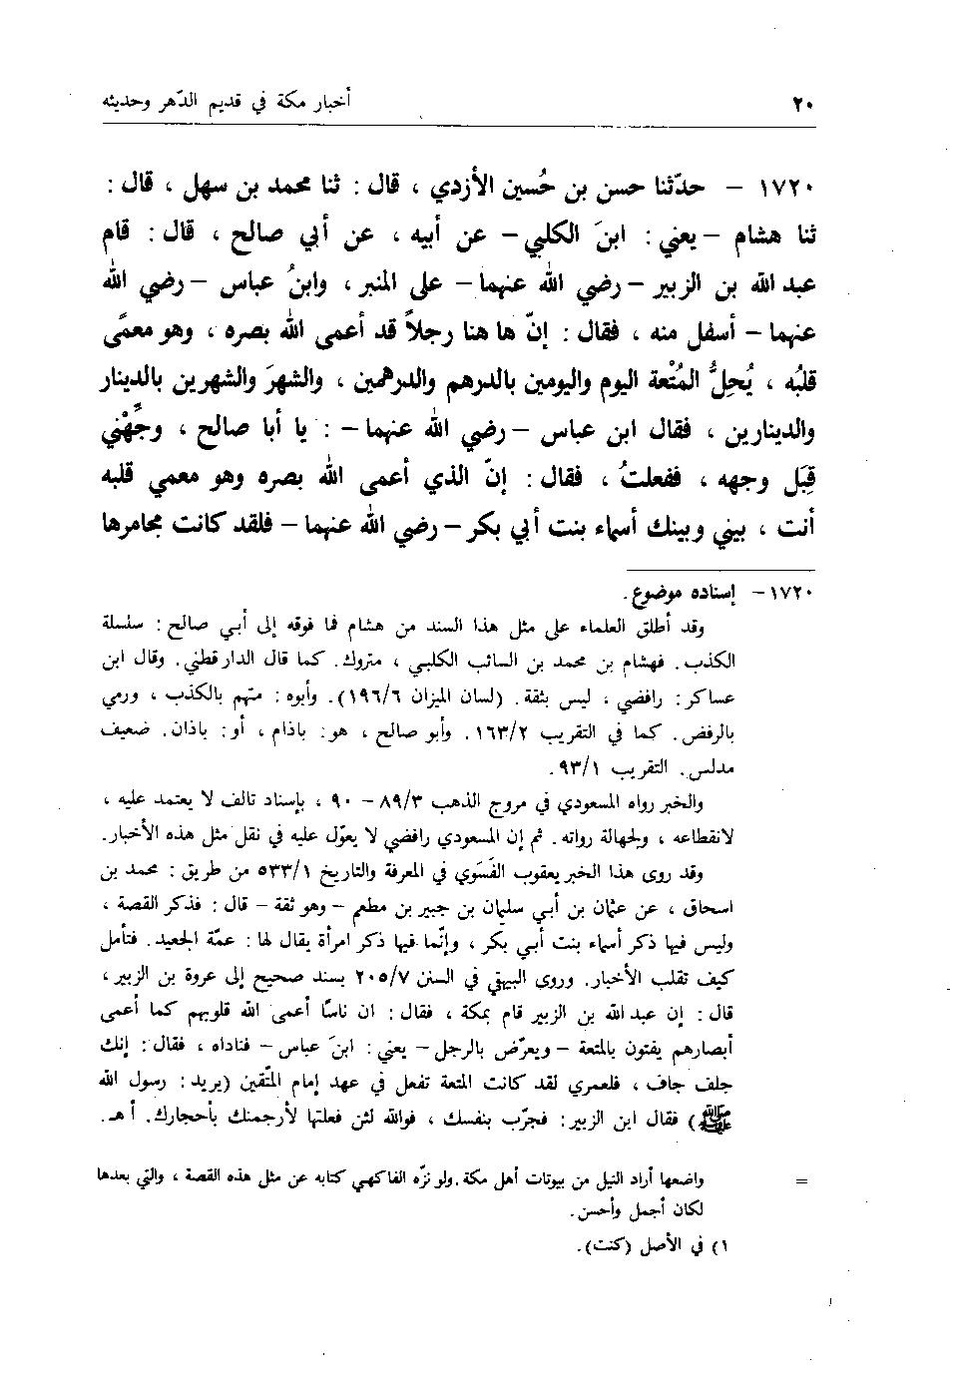 ٢٠ أخبار مكة في قديم الدّهر وحديثه
١٧٢٠ – حدّثنا حسن بن حُسين الأزدي ، قال : ثنا محمد بن سهل ، قال :
ثنا هشام – يعني : ابنَ الكلبي – عن أبيه ، عن أبي صالح ، قال : قام
عبد الله بن الزبير – رضي الله عنهما – على المنبر ، وابنُ عباس – رضي الله
عنهما – أسفل منه ، فقال : إنّ ها هنا رجلاً قد أعمى الله بصره ، وهو معمًى
قلبُه ، يُحِلُّ المُتْعة اليوم واليومين بالدرهم والدرهمين ، والشهرَ والشهرين بالدينار
والدينارين ، فقال ابن عباس – رضي الله عنهما – : يا أبا صالح ، وجِّهْني
قِبَل وجهه ، ففعلتُ ، فقال : إنّ الذي أعمى الله بصره وهو معمي قلبه
أنت ، بيني وبينك أسماء بنت أبي بكر – رضي الله عنهما – فلقد كانت مجامرها
١٧٢٠ – إسناده موضوع.
وقد أطلق العلماء على مثل هذا السند من هشام فما فوقه إلى أبي صالح : سلسلة
الكذب. فهشام بن محمد بن السائب الكلبي ، متروك. كما قال الدارقطني. وقال ابن
عساكر : رافضي ، ليس بثقة. (لسان الميزان ١٩٦/٦). وأبوه : متهم بالكذب ، ورمي
بالرفض. كما في التقريب ١٦٣/٢. وأبو صالح ، هو : باذام ، أو : باذان. ضعيف
مدلس. التقريب ٩٣/١.
والخبر رواه المسعودي في مروج الذهب ٨٩/٣ – ٩٠ ، بإسناد تالف لا يعتمد عليه ،
لانقطاعه ، ولجهالة رواته. ثم إن المسعودي رافضي لا يعوّل عليه في نقل مثل هذه الأخبار.
وقد روى هذا الخبر يعقوب الفَسَوي في المعرفة والتاريخ ٥٣٣/١ من طريق : محمد بن
اسحاق ، عن عثمان بن أبي سليمان بن جبير بن مطعم – وهو ثقة – قال : فذكر القصة ،
وليس فيها ذكر أسماء بنت أبي بكر ، وإنّما فيها ذكر امرأة يقال لها : عمّة الجعيد. فتأمل
كيف تقلب الأخبار. وروى البيهقي في السنن ٢٠٥/٧ بسند صحيح إلى عروة بن الزبير ،
قال : إن عبدالله بن الزبير قام بمكة ، فقال : ان ناسًا أعمى الله قلوبهم كما أعمى
أبصارهم يفتون بالمتعة – ويعرّض بالرجل – يعني : ابنَ عباس – فناداه ، فقال : إنك
جلف جاف ، فلعمري لقد كانت المتعة تفعل في عهد إمام المتّقين (يريد : رسول الله
ﷺ) فقال ابن الزبير : فجرّب بنفسك ، فوالله لئن فعلتها لأرجمنك بأحجارك. أ هـ.
= واضعها أراد النيل من بيوتات أهل مكة. ولو نزّه الفاكهي كتابه عن مثل هذه القصة ، والتي بعدها
لكان أجمل وأحسن.
١) في الأصل (كنت).